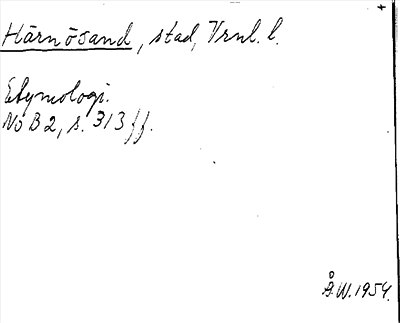 +
Härnösand, stad, Vrnl. l.
Etymologi.
NoB 2, s. 313 ff.
Å.W. 1954.